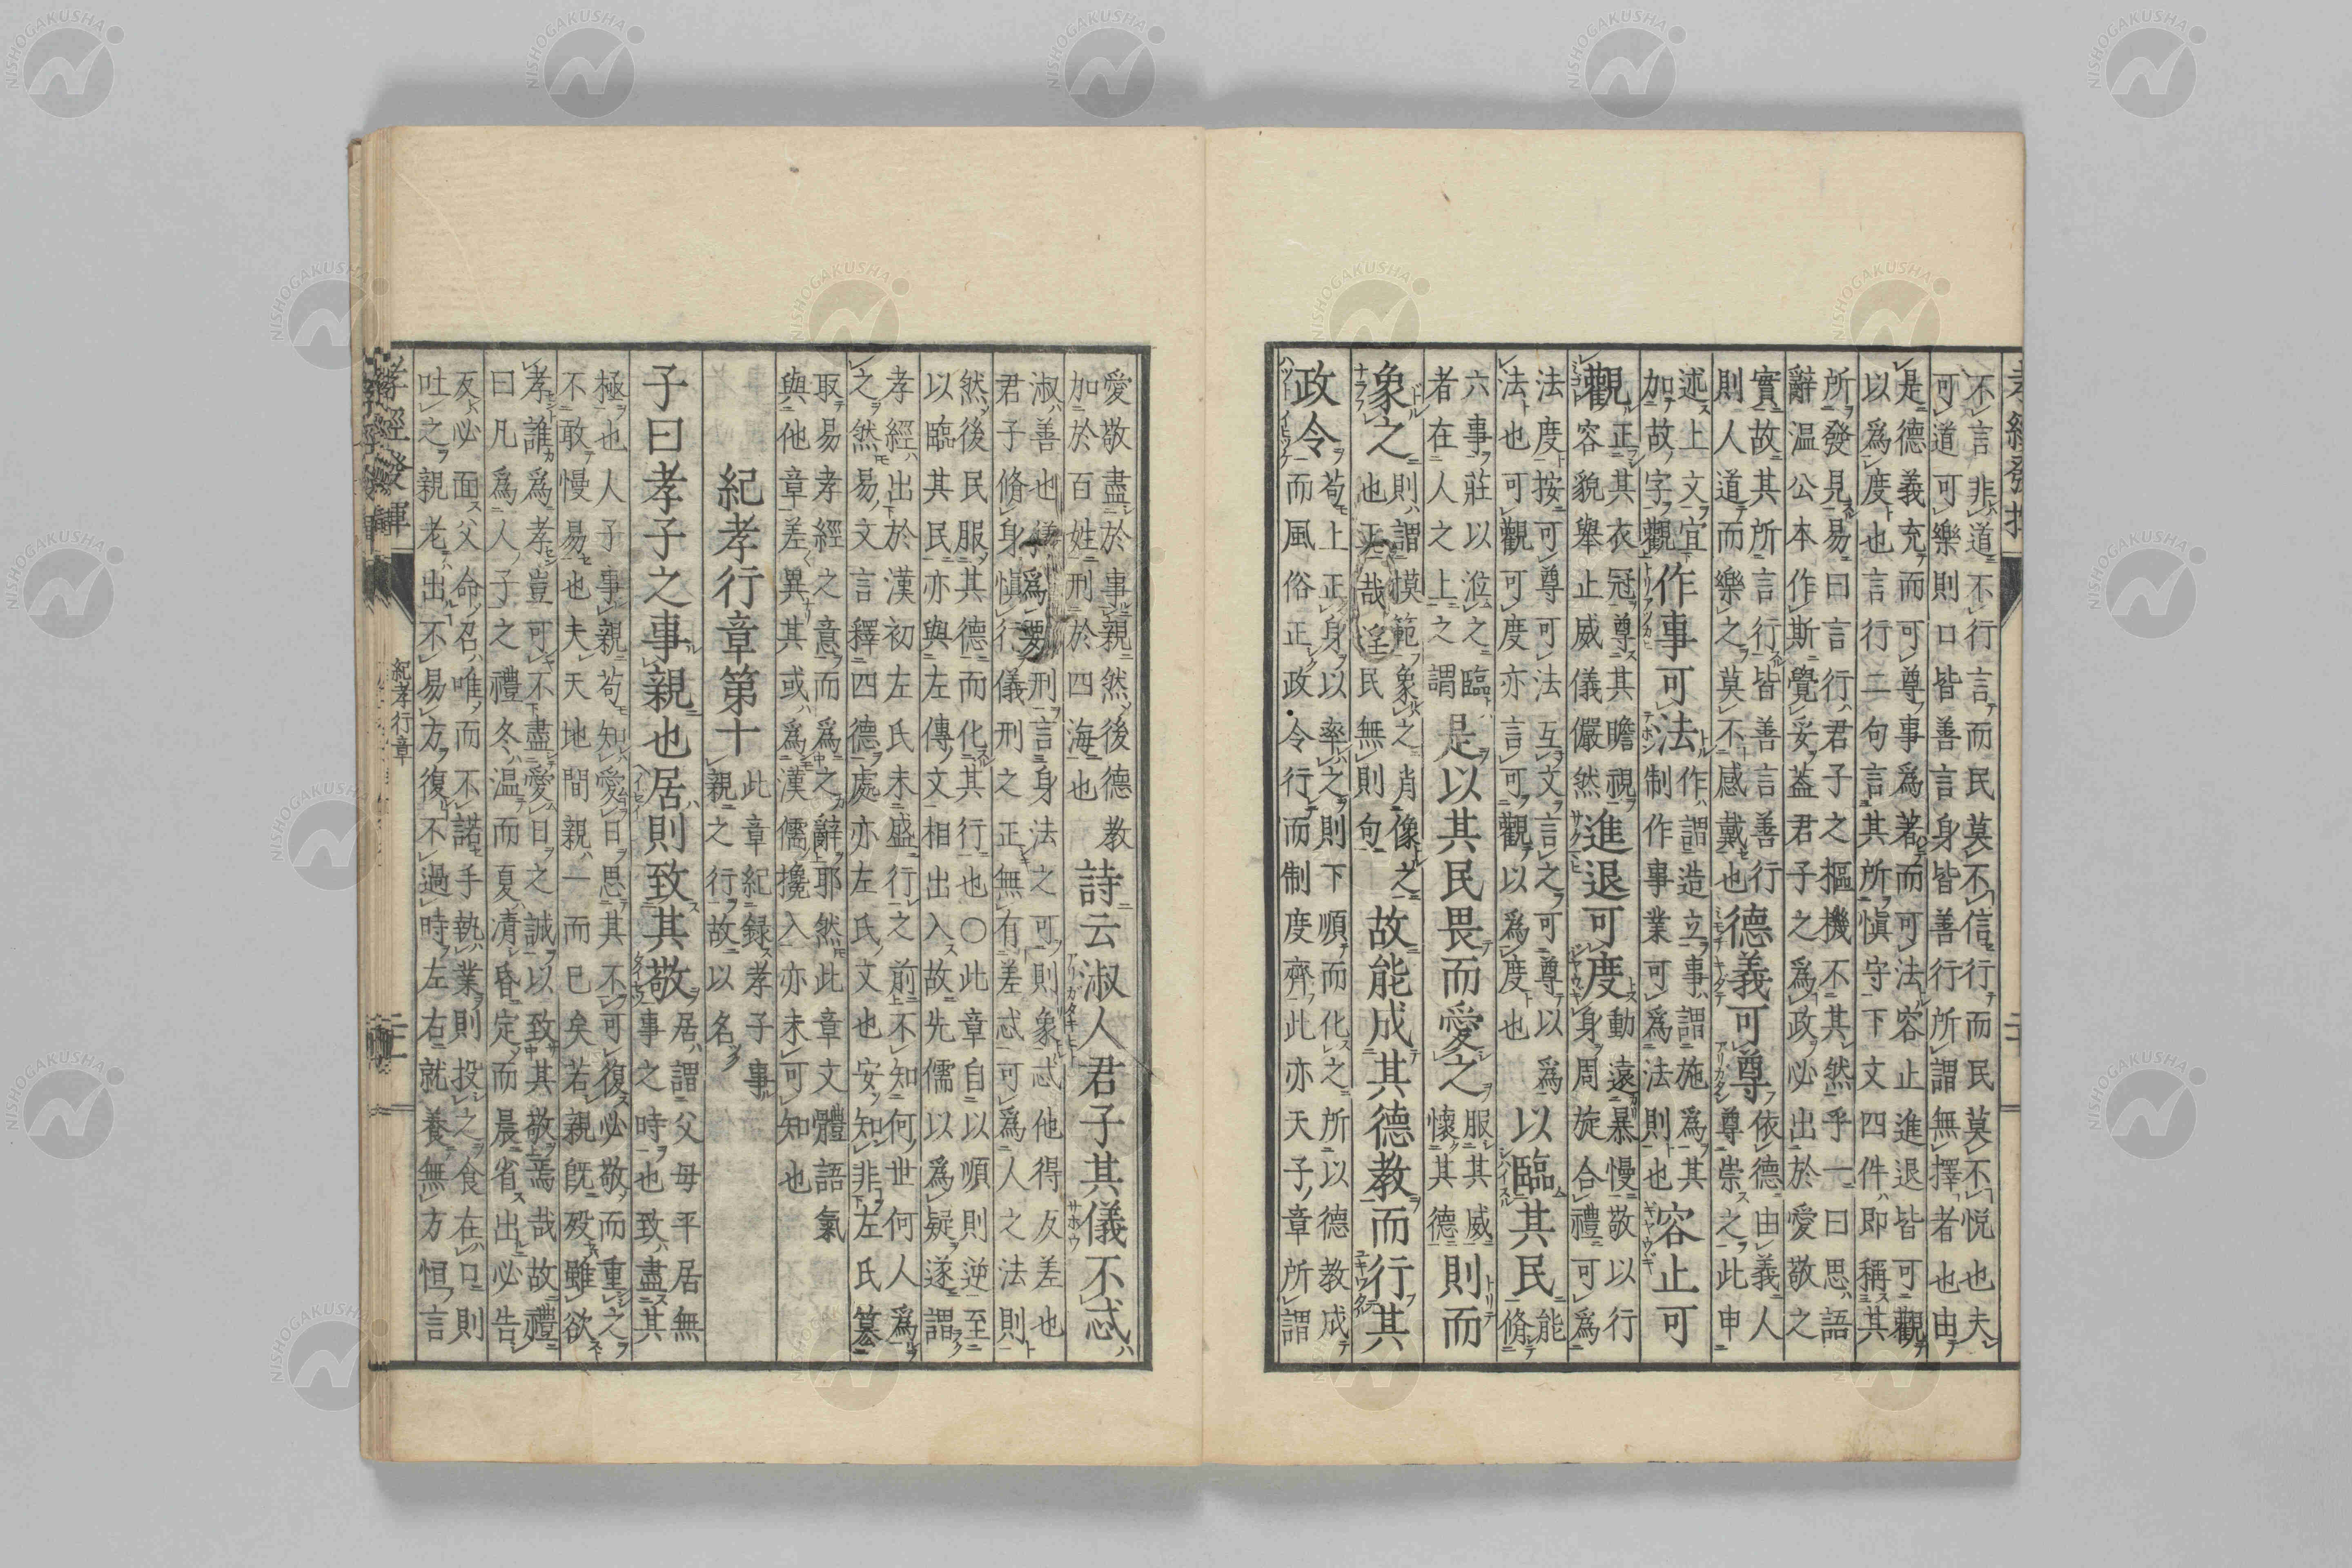 不言非道不行言而民莫不信行而民莫不悦也夫
可道可樂則口皆善言身皆善行所謂無擇者也由
是德義充而可尊事爲著而可法容止進退皆可觀
以爲度也言行二句言其所愼守下文四件即稱其
所發見易曰言行君子之樞機不其然乎一曰思語
辭温公本作斯覺妥葢君子之爲政必出於愛敬之
實故其所言行皆善言善行
則人道而樂之莫不感戴也
德義可尊
依德由義人
尊崇之此申
述上文宜
加故字觀
作事可法
作謂造立事謂施爲其
制作事業可爲法則也
容止可
觀
正其衣冠尊其瞻視
容貌舉止威儀儼然
進退可度
動遠暴慢敬以行
身周旋合禮可爲
法度按可尊可法互文言之可尊以爲
法也可觀可度亦言可觀以爲度也
以臨其民
能
脩
六事莊以涖之臨
者在人之上之謂
是以其民畏而愛之
服其威
懷其德
則而
象之
則謂模範象之肖像之
也正哉淫民無則句
故能成其德教而行其
政令
苟上正身以率之則下順而化之所以德教成
而風俗正政令行而制度齊此亦天子章所謂
愛敬盡於事親然後德教
加於百姓刑於四海也
詩云淑人君子其儀不忒
淑善也儀爲要刑言身法之可則象忒他得反差也
君子脩身愼行儀刑之正無有差忒可爲人之法則
然後民服其德而化其行也〇此章自以順則逆至
以臨其民亦與左傳文相出入故先儒以爲疑遂謂
孝經出於漢初左氏未盛行之前不知何世何人爲
之然易文言釋四德處亦左氏文也安知非左氏纂
取易孝經之意而爲之辭耶然此章文體語氣
與他章差異其或爲漢儒攙入亦未可知也
紀孝行章第十
此章紀録孝子事
親之行故以名
子曰孝子之事親也居則致其敬
居謂父母平居無
事之時也致盡其
極也人子事親苟知愛日思其不可復必敬而重之
不敢慢易也夫天地間親一而已矣若親旣歿雖欲
孝誰爲孝豈可不盡愛日之誠以致其敬焉哉故禮
曰凡爲人子之禮冬温而夏凊昏定而晨省出必告
反必面父命召唯而不諾手執業則投之食在口則
吐之親老出不易方復不過時左右就養無方恒言
孝經發揮
紀孝行章